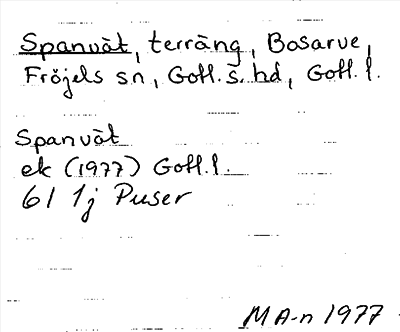 Spanvät, terräng, Bosarve,
Fröjels sn, Gotl. s. hd, Gotl. l.
Spanvät
ek (1977) Gotl. l.
6I 1j Puser
M A-n 1977